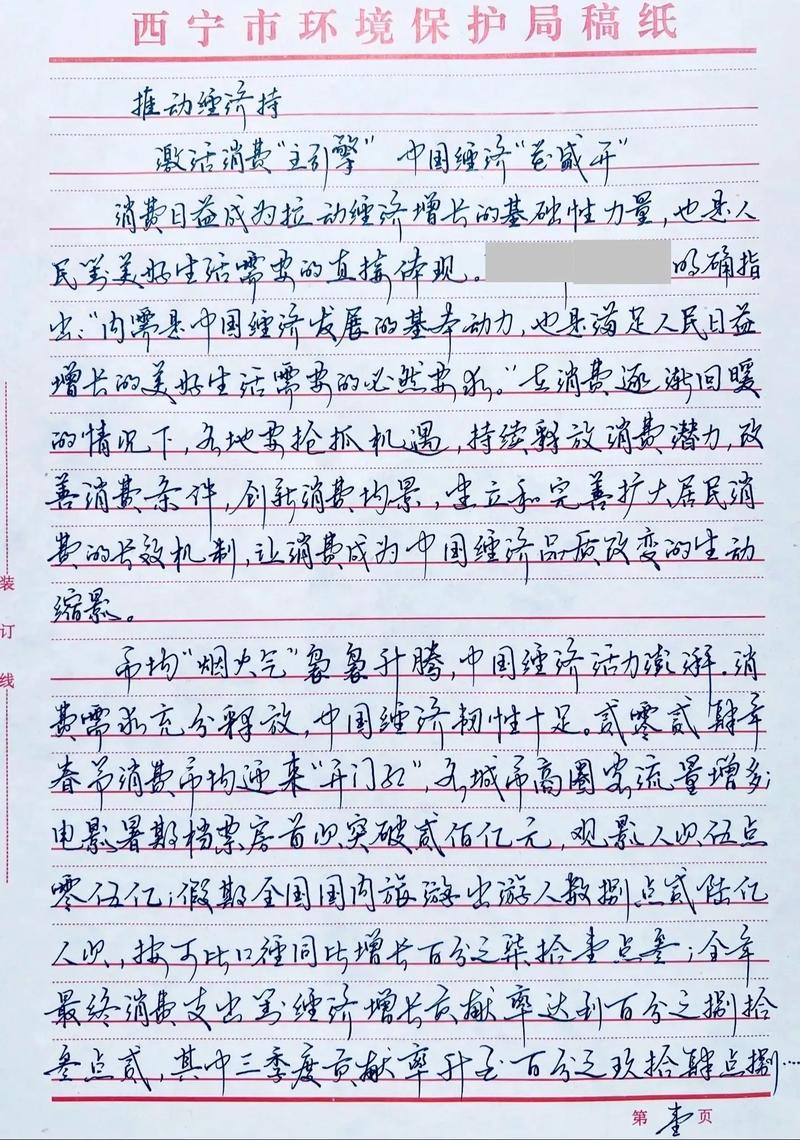 西宁市环境保护局稿纸
推动经济持
激活消费“主引擎” 中国经济“花盛开”
消费日益成为拉动经济增长的基础性力量，也是人
民对美好生活需要的直接体现。明确指
出：“内需是中国经济发展的基本动力，也是满足人民日益
增长的美好生活需要的必然要求。”在消费逐渐回暖
的情况下，各地要抢抓机遇，持续释放消费潜力，改
善消费条件，创新消费场景，建立和完善扩大居民消
费的长效机制，让消费成为中国经济品质改变的生动
缩影。
市场“烟火气”袅袅升腾，中国经济活力澎湃。消
费需求充分释放，中国经济韧性十足。贰零贰肆年
春节消费市场迎来“开门红”，各城市商圈客流量增多；
电影暑期档票房首次突破贰佰亿元，观影人次伍点
零伍亿；假期全国国内旅游出游人数捌点贰陆亿
人次，按可比口径同比增长百分之柒拾壹点叁；全年
最终消费支出对经济增长贡献率达到百分之捌拾
叁点贰，其中三季度贡献率升至百分之玖拾肆点捌…
第壹页
装
订
线